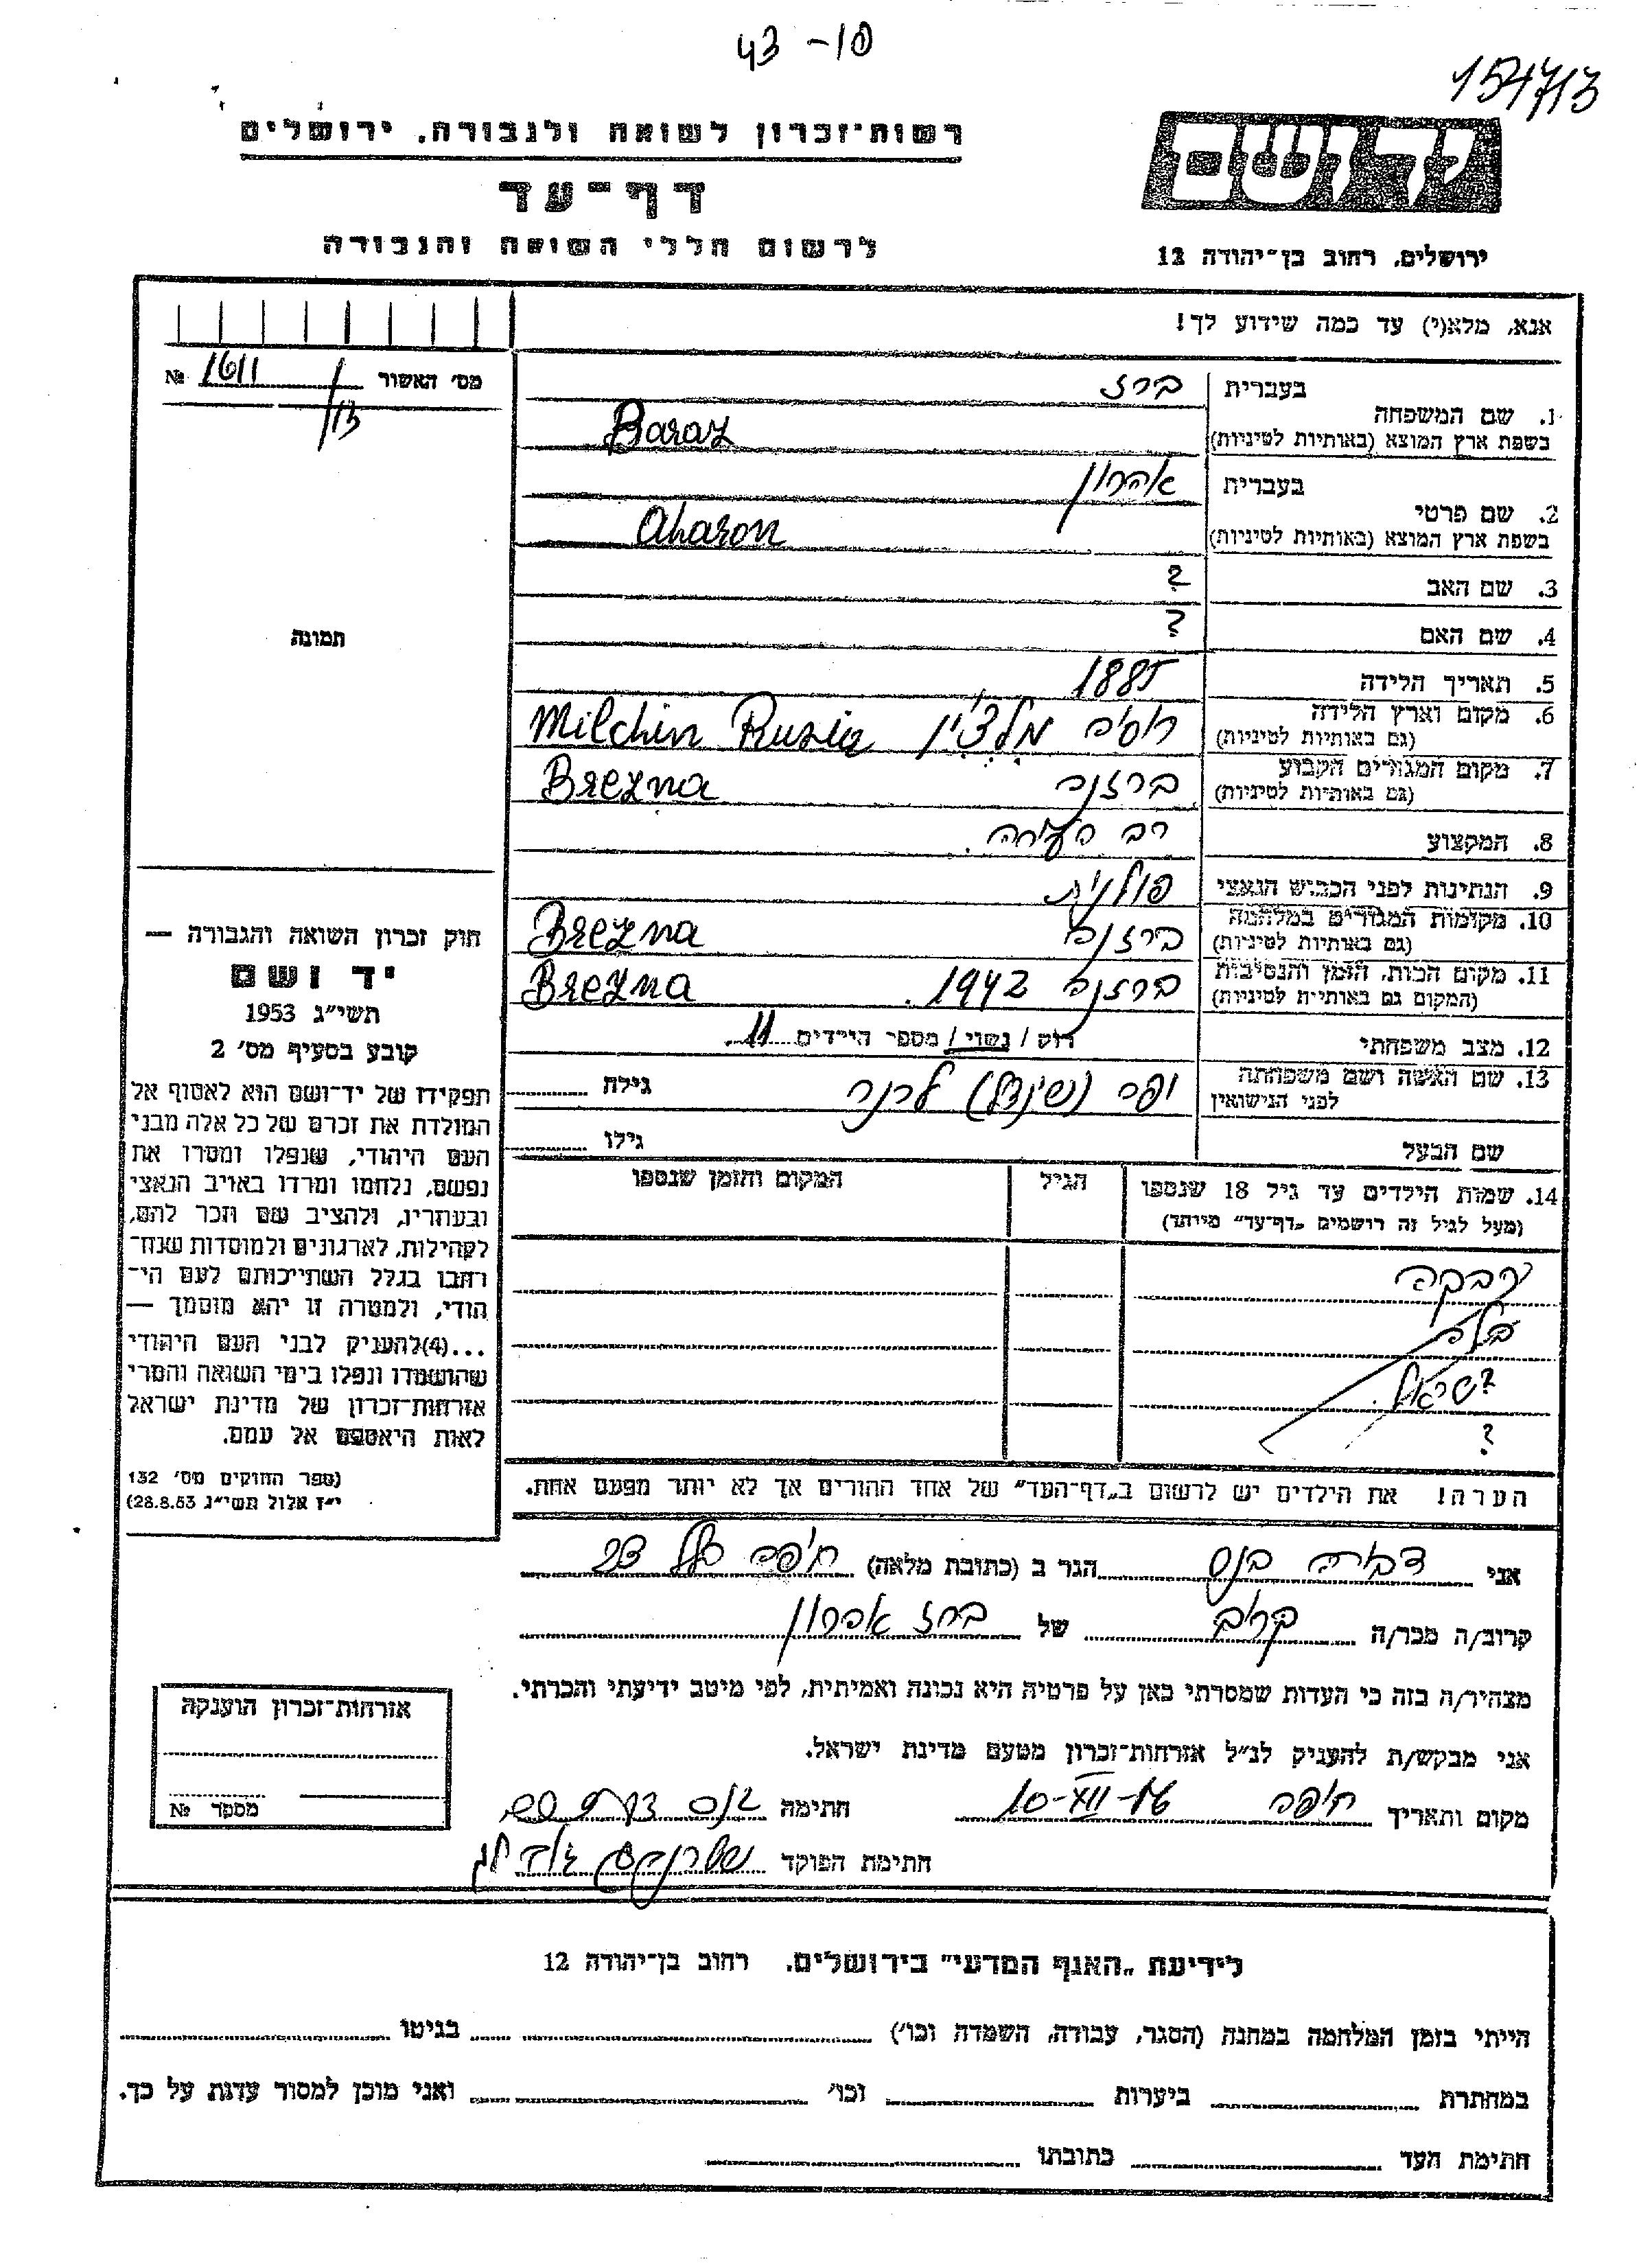 43 -10
154713
יד ושם
רשות־זכרון לשואה ולגבורה, ירושלים
דף־עד
לרשום חללי השואה והגבורה
ירושלים, רחוב בן־יהודה 12
אנא, מלא(י) עד כמה שידוע לך!
מס' האשור 1611 №
/13
תמונה
בעברית ברז
1. שם המשפחה
בשפת ארץ המוצא (באותיות לטיניות) Baraz
בעברית אהרון
2. שם פרטי
בשפת ארץ המוצא (באותיות לטיניות) Aharon
3. שם האב ?
4. שם האם ?
5. תאריך הלידה 1885
6. מקום וארץ הלידה רוסיה Milchin Rusia
(גם באותיות לטיניות)
7. מקום המגורים הקבוע ברזנה Brezna
(גם באותיות לטיניות)
8. המקצוע רב העירה.
9. הנתינות לפני הכבוש הנאצי פולנית
10. מקומות המגורים במלחמה ברזנה Brezna
(גם באותיות לטיניות)
11. מקום המות, הזמן והנסיבות ברזנה 1942. Brezna
(המקום גם באותיות לטיניות)
12. מצב משפחתי רוק / נשוי / מספר הילדים 11.
13. שם האשה ושם משפחתה יפה (שינדל) לרנר גילה
לפני הנישואין
שם הבעל גילו
14. שמות הילדים עד גיל 18 שנספו הגיל המקום והזמן שנספו
(מעל לגיל זה רושמים „דף־עד" מיוחד)
רבקה
?
?
הערה! את הילדים יש לרשום ב„דף־העד" של אחד ההורים אך לא יותר מפעם אחת.
חוק זכרון השואה והגבורה —
יד ושם
תשי"ג 1953
קובע בסעיף מס' 2
תפקידו של יד־ושם הוא לאסוף אל
המולדת את זכרם של כל אלה מבני
העם היהודי, שנפלו ומסרו את
נפשם, נלחמו ומרדו באויב הנאצי
ובעוזריו, ולהציב שם וזכר להם,
לקהילות, לארגונים ולמוסדות שנח־
רבו בגלל השתייכותם לעם הי־
הודי, ולמטרה זו יהא מוסמך —
...(4)להעניק לבני העם היהודי
שהושמדו ונפלו בימי השואה והמרי
אזרחות־זכרון של מדינת ישראל
לאות היאספם אל עמם.
(ספר החוקים מס' 132
י"ז אלול תשי"ג 28.8.53)
אני דבורה הגר ב (כתובת מלאה) חיפה
קרוב/ה מכר/ה קרוב של ברז אהרון
מצהיר/ה בזה כי העדות שמסרתי כאן על פרטיה היא נכונה ואמיתית, לפי מיטב ידיעתי והכרתי.
אני מבקש/ת להעניק לנ"ל אזרחות־זכרון מטעם מדינת ישראל.
מקום ותאריך חיפה 10-XII- חתימה
חתימת הפוקד
אזרחות־זכרון הוענקה
מספר №
לידיעת „האגף המדעי" בירושלים, רחוב בן־יהודה 12
הייתי בזמן המלחמה במחנה (הסגר, עבודה, השמדה וכו') בגיטו
במחתרת ביערות וכו' ואני מוכן למסור עדות על כך.
חתימת העד כתובתו